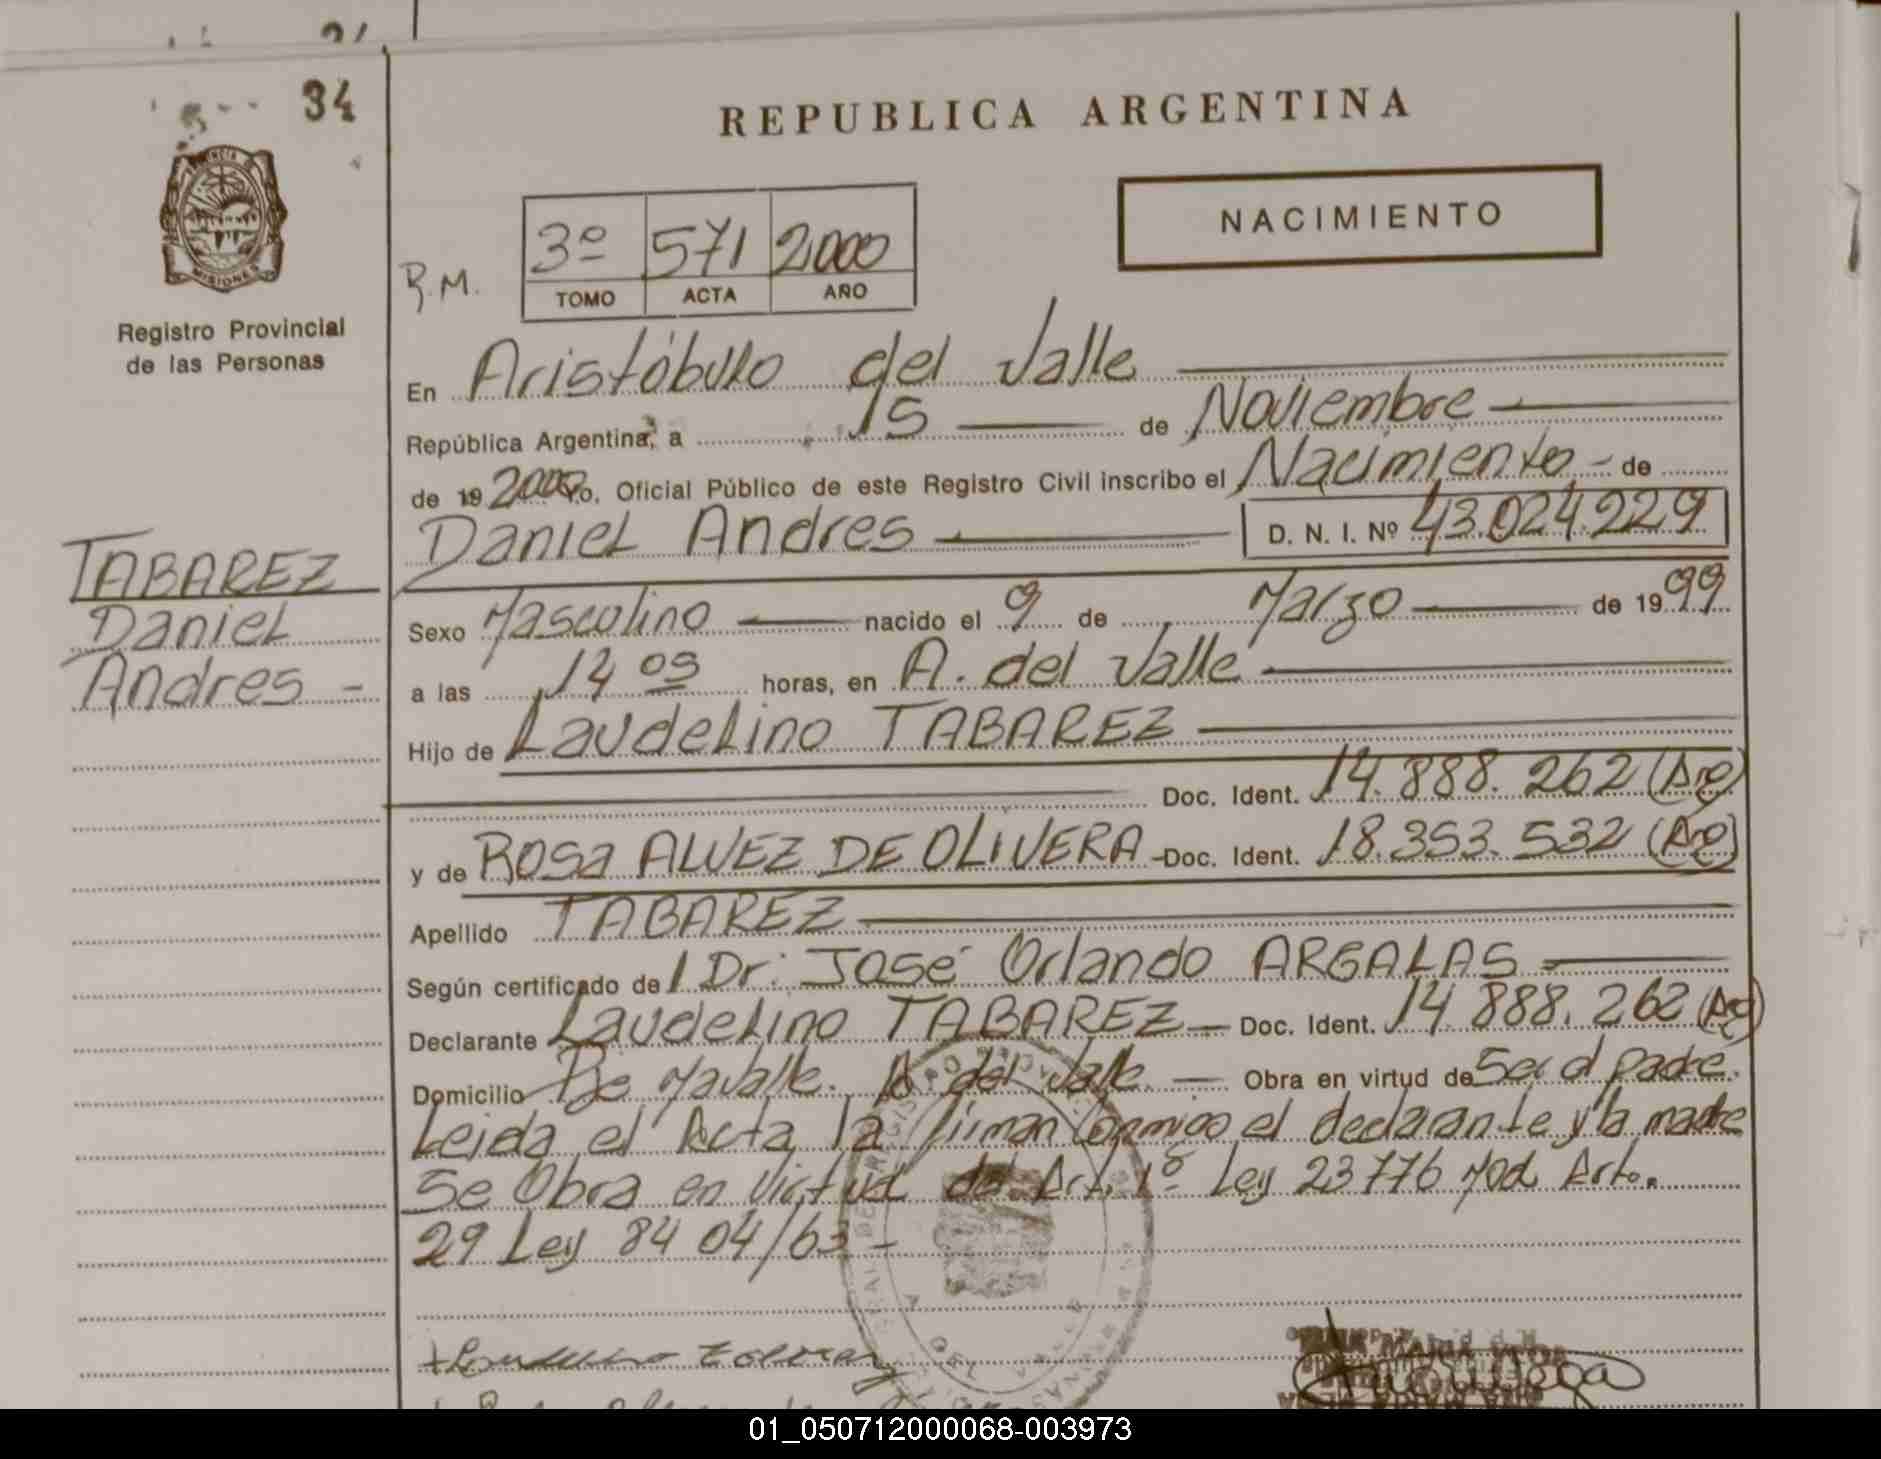 34
REPUBLICA ARGENTINA
PROVINCIA DE
MISIONES
Registro Provincial
de las Personas
NACIMIENTO
R.M.
3º 571 2000
TOMO ACTA AÑO
En Aristóbulo del Valle
República Argentina, a 15 de Noviembre
de 19 2000 Yo, Oficial Público de este Registro Civil inscribo el Nacimiento - de
Daniel Andres D. N. I. Nº 43.024.229
TABAREZ
Daniel
Andres -
Sexo Masculino nacido el 9 de Marzo de 1999
a las 14 05 horas, en A. del Valle
Hijo de Laudelino TABAREZ
Doc. Ident. 14.888.262 (Arg)
y de ROSA ALVEZ DE OLIVERA - Doc. Ident. 18.353.532 (Arg)
Apellido TABAREZ
Según certificado de Dr: José Orlando ARGALAS
Declarante Laudelino TABAREZ - Doc. Ident. 14 888.262 (Arg)
Domicilio A. del Valle. Obra en virtud de Ser el padre.
Leida el Acta la firman conmigo el declarante y la madre
Se Obra en Virtud del Art. 1º Ley 23776 Mod Arto.
29 Ley 84 04/63 -
01_050712000068-003973